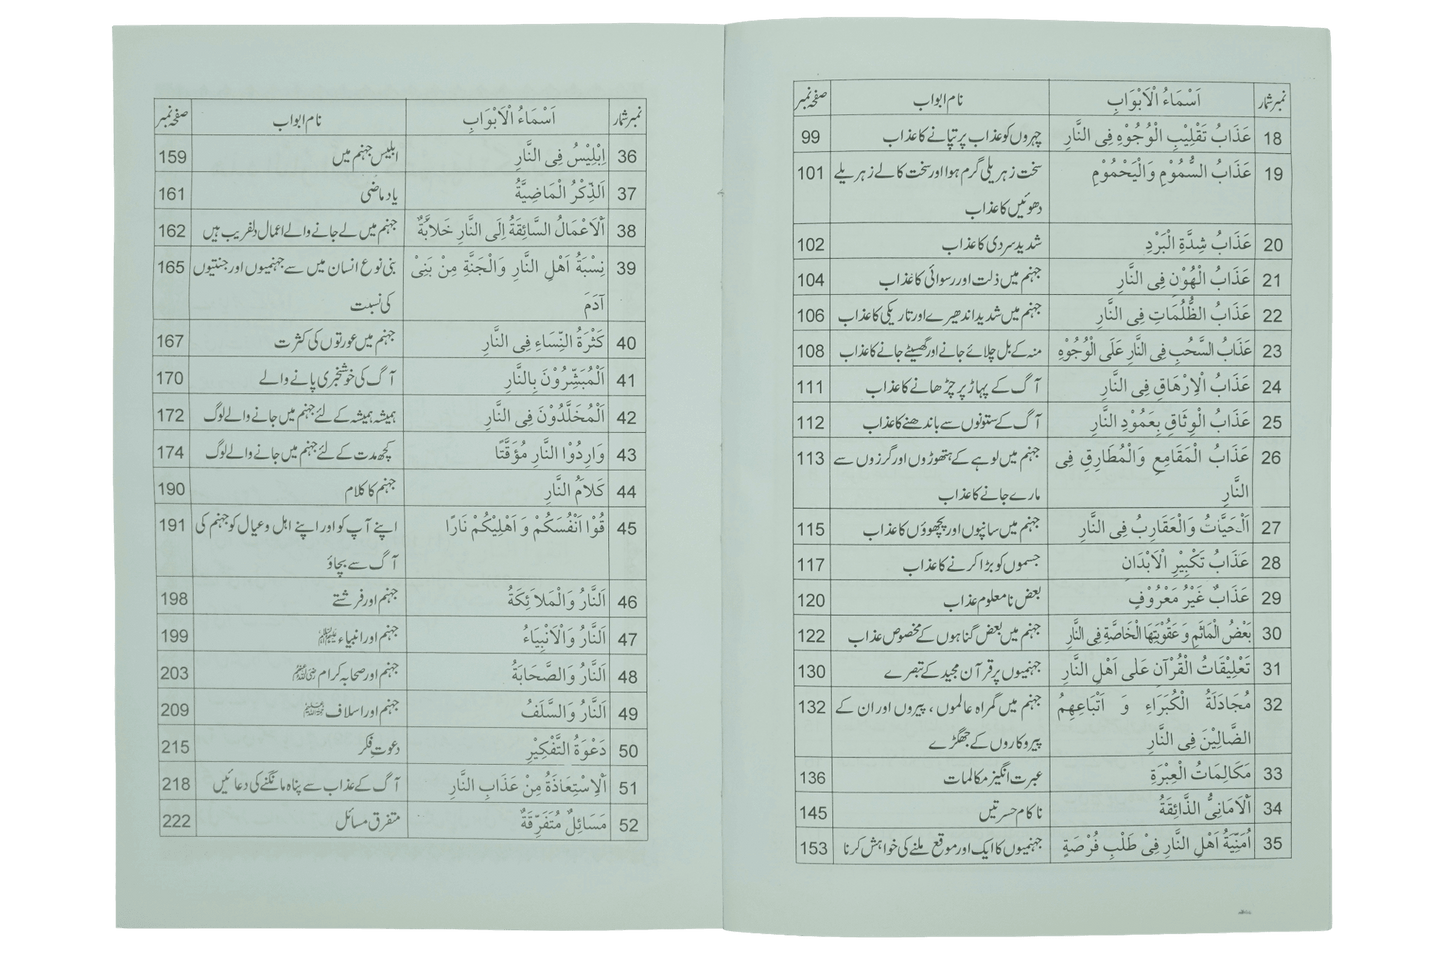 نمبر شمار اَسْمَاءُ الْاَبْوَابِ نام ابواب صفحہ نمبر
18 عَذَابُ تَقْلِيْبِ الْوُجُوْهِ فِى النَّارِ چہروں کو عذاب پر تپانے کا عذاب 99
19 عَذَابُ السُّمُوْمِ وَالْيَحْمُوْمِ سخت زہریلی گرم ہوا اور سخت کالے زہریلے 101
دھوئیں کا عذاب
20 عَذَابُ شِدَّةِ الْبَرْدِ شدید سردی کا عذاب 102
21 عَذَابُ الْهُوْنِ فِى النَّارِ جہنم میں ذلت اور رسوائی کا عذاب 104
22 عَذَابُ الظُّلُمَاتِ فِى النَّارِ جہنم میں شدید اندھیرے اور تاریکی کا عذاب 106
23 عَذَابُ السَّحْبِ فِى النَّارِ عَلَى الْوُجُوْهِ منہ کے بل چلائے جانے اور گھسیٹے جانے کا عذاب 108
24 عَذَابُ الْاِرْهَاقِ فِى النَّارِ آگ کے پہاڑ پر چڑھانے کا عذاب 111
25 عَذَابُ الْوِثَاقِ بِعَمُوْدِ النَّارِ آگ کے ستونوں سے باندھنے کا عذاب 112
26 عَذَابُ الْمَقَامِعِ وَالْمُطَارِقِ فِى جہنم میں لوہے کے ہتھوڑوں اور گرزوں سے 113
النَّارِ مارے جانے کا عذاب
27 اَلْحَيَّاتُ وَالْعَقَارِبُ فِى النَّارِ جہنم میں سانپوں اور بچھوؤں کا عذاب 115
28 عَذَابُ تَكْبِيْرِ الْاَبْدَانِ جسموں کو بڑا کرنے کا عذاب 117
29 عَذَابٌ غَيْرُ مَعْرُوْفٍ بعض نامعلوم عذاب 120
30 بَعْضُ الْمَاٰثِمِ وَ عَقُوْبَتِهَا الْخَاصَّةِ فِى النَّارِ جہنم میں بعض گناہوں کے مخصوص عذاب 122
31 تَعْلِيْقَاتُ الْقُرْآنِ عَلٰى اَهْلِ النَّارِ جہنمیوں پر قرآن مجید کے تبصرے 130
32 مُجَادَلَةُ الْكُبَرَاءِ وَ اَتْبَاعِهِمُ جہنم میں گمراہ عالموں، پیروں اور ان کے 132
الضَّالِيْنَ فِى النَّارِ پیروکاروں کے جھگڑے
33 مَكَالِمَاتُ الْعِبْرَةِ عبرت انگیز مکالمات 136
34 اَلْاَمَانِىُّ الذَّائِقَةُ ناکام حسرتیں 145
35 اُمَنِّيَةُ اَهْلِ النَّارِ فِىْ طَلْبِ فُرْصَةٍ جہنمیوں کا ایک اور موقع ملنے کی خواہش کرنا 153
نمبر شمار اَسْمَاءُ الْاَبْوَابِ نام ابواب صفحہ نمبر
36 اِبْلِيْسُ فِى النَّارِ ابلیس جہنم میں 159
37 اَلذِّكْرُ الْمَاضِيَّةُ یاد ماضی 161
38 اَلْاَعْمَالُ السَّائِقَةُ اِلَى النَّارِ خَلَابَّةٌ جہنم میں لے جانے والے اعمال دلفریب ہیں 162
39 نِسْبَةُ اَهْلِ النَّارِ وَالْجَنَّةِ مِنْ بَنِىْ بنی نوع انسان میں سے جہنمیوں اور جنتیوں 165
آدَمَ کی نسبت
40 كَثْرَةُ النِّسَاءِ فِى النَّارِ جہنم میں عورتوں کی کثرت 167
41 اَلْمُبَشِّرُوْنَ بِالنَّارِ آگ کی خوشخبری پانے والے 170
42 اَلْمُخَلَّدُوْنَ فِى النَّارِ ہمیشہ ہمیشہ کے لئے جہنم میں جانے والے لوگ 172
43 وَارِدُوْا النَّارِ مُؤَقَّتًا کچھ مدت کے لئے جہنم میں جانے والے لوگ 174
44 كَلاَمُ النَّارِ جہنم کا کلام 190
45 قُوْا اَنْفُسَكُمْ وَ اَهْلِيْكُمْ نَارًا اپنے آپ کو اور اپنے اہل و عیال کو جہنم کی 191
آگ سے بچاؤ
46 اَلنَّارُ وَالْمَلاَئِكَةُ جہنم اور فرشتے 198
47 اَلنَّارُ وَالْاَنْبِيَاءُ جہنم اور انبیاء 199
48 اَلنَّارُ وَالصَّحَابَةُ جہنم اور صحابہ کرام 203
49 اَلنَّارُ وَالسَّلَفُ جہنم اور اسلاف 209
50 دَعْوَةُ التَّفْكِيْرِ دعوتِ فکر 215
51 اَلْاِسْتِعَاذَةُ مِنْ عَذَابِ النَّارِ آگ کے عذاب سے پناہ مانگنے کی دعائیں 218
52 مَسَائِلُ مُتَفَرِّقَةٌ متفرق مسائل 222